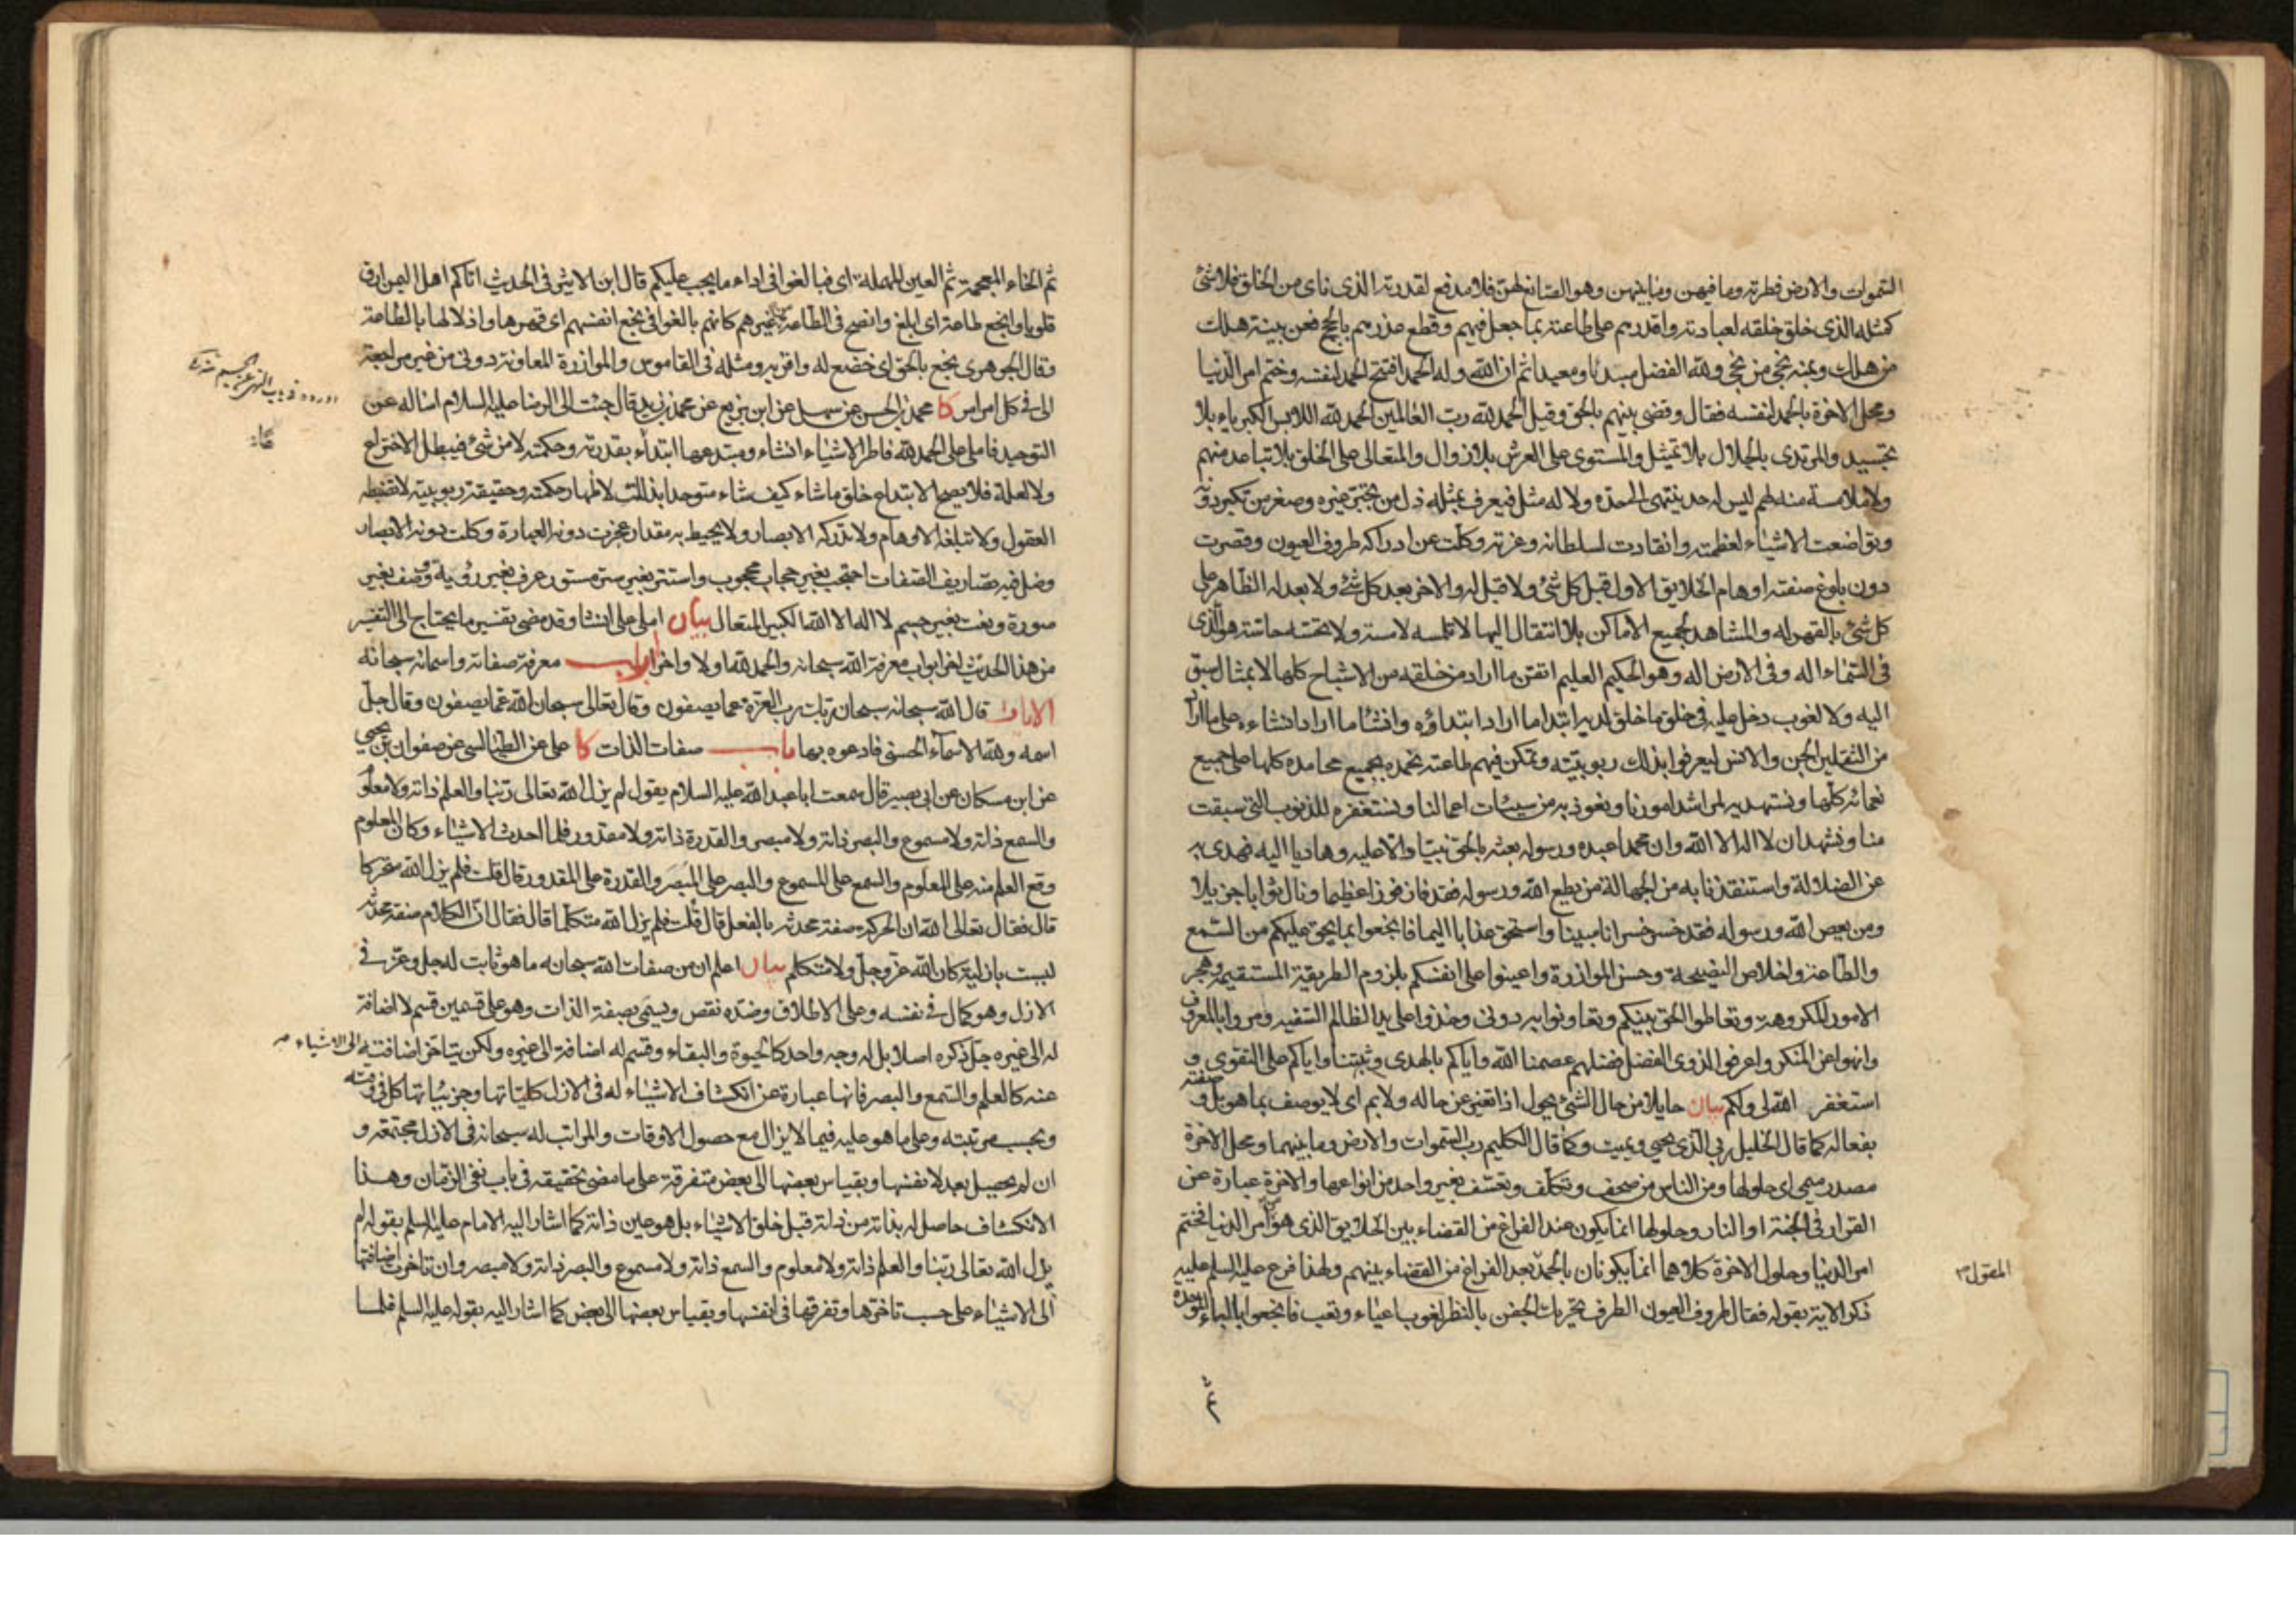 السموات والارض فطرته وما فيهن وما بينهن وهو الصانع لهن فلا مدفع لقدرته الذى ناى من الخلق فلا شئ
كمثله الذى خلق خلقه لعبادته واقدرهم على طاعته بما جعل فيهم وقطع عذرهم بالحجج فعن بينة هلك
من هلك وبمنه نجى من نجى ولله الفضل مبدئا ومعيدا ثم ان الله وله الحمد افتتح الحمد لنفسه وختم امر الدنيا
ومحل الاخرة بالحمد لنفسه فقال وقضى بينهم بالحق وقيل الحمد لله رب العالمين الحمد لله اللابس الكبرياء بلا
تجسيد والمرتدى بالجلال بلا تمثيل والمستوى على العرش بلا زوال والمتعالى على الخلق بلا تباعد منهم
ولا ملامسة منه لهم ليس له حد ينتهى الى حده ولا له مثل فيعرف بمثله ذل من تجبر غيره وصغر من تكبر دونه
وتواضعت الاشياء لعظمته وانقادت لسلطانه وعزته وكلت عن ادراكه طروف العيون وقصرت
دون بلوغ صفته اوهام الخلايق الاول قبل كل شئ ولا قبل له والاخر بعد كل شئ ولا بعد له الظاهر على
كل شئ بالقهر له والمشاهد لجميع الاماكن بلا انتقال اليها لا تلمسه لامسة ولا تحسه حاسة هو الذى
فى السماء اله وفى الارض اله وهو الحكيم العليم اتقن ما اراد من خلقه من الاشباح كلها لا بمثال سبق
اليه ولا لغوب دخل عليه فى خلق ما خلق لديه ابتدا ما اراد ابتداؤه وانشا ما اراد انشاءه على ما اراد
من الثقلين الجن والانس ليعرفوا بذلك ربوبيته وتمكن فيهم طاعته نحمده بجميع محامده كلها على جميع
نعمائه كلها ونستهديه لمراشد امورنا ونعوذ به من سيئات اعمالنا ونستغفره للذنوب التى سبقت
منا ونشهد ان لا اله الا الله وان محمدا عبده ورسوله بعثه بالحق نبيا دالا عليه وهاديا اليه فهدى به
من الضلالة واستنقذنا به من الجهالة من يطع الله ورسوله فقد فاز فوزا عظيما ونال ثوابا جزيلا
ومن يعص الله ورسوله فقد خسر خسرانا مبينا واستحق عذابا اليما فانجعوا بما يحق عليكم من السمع
والطاعة واخلاص النصيحة وحسن الموازرة واعينوا على انفسكم بلزوم الطريقة المستقيمة وهجر
الامور المكروهة وتعاطوا الحق بينكم وتعاونوا به دونى وخذوا على يد الظالم السفيه ومروا بالمعروف
وانهوا عن المنكر واعرفوا لذوى الفضل فضلهم عصمنا الله واياكم بالهدى وثبتنا واياكم على التقوى و
استغفر الله لى ولكم بيان حايلا من حال الشئ يحول اذا تغير عن حاله ولا بم اى لا يوصف بما هو بل و صفته
بفعاله كما قال الخليل ربى الذى يحيى ويميت وكما قال الكليم رب السموات والارض وما بينهما ومحل الاخرة
مصدر ميمى اى حلولها ومن الناس من صحف وتكلف وتعسف بغير واحد من انواعها والاخرة عبارة عن
القرار فى الجنة او النار وحلولها انما يكون عند الفراغ من القضاء بين الخلايق الذى هو آخر امر الدنيا فختم
امر الدنيا وحلول الاخرة كلاهما انما يكونان بالحمد بعد الفراغ من القضاء بينهم ولهذا فرع عليه السلم عليه
المقول
ذكر الاية بقوله فقال طروف العيون الطرف تحريك الجفن بالنظر لغوب اعياء وتعب فانجعوا بالباء الموحدة
ثم الخاء المعجمة ثم العين المهملة اى فبالغوا فى اداء ما يجب عليكم قال ابن الاثير فى الحديث اتاكم اهل اليمن ارق
قلوبا وابخع طاعة اى ابلغ وانصح فى الطاعة من غيرهم كانهم بالغوا فى بخع انفسهم اى قهرها واذلالها بالطاعة
وقال الجوهرى بخع بالحق اى خضع له واقر به ومثله فى القاموس والموازرة المعاونة دونى من غير مراجعة
الى فى كل امر امر كا محمد بن الحسن عن سهل عن ابن بزيع عن محمد بن زيد قال جئت الى الرضا عليه السلام اساله عن
التوحيد فاملى على الحمد لله فاطر الاشياء انشاء ومبتدعها ابتداء بقدرته وحكمته لا من شئ فيبطل الاختراع
ولا لعلة فلا يصح الابتداع خلق ما شاء كيف شاء متوحدا بذلك لاظهار حكمته وحقيقة ربوبيته لا تضبطه
العقول ولا تبلغه الاوهام ولا تدركه الابصار ولا يحيط به مقدار عجزت دونه العبارة وكلت دونه الابصار
وضل فيه تصاريف الصفات احتجب بغير حجاب محجوب واستتر بغير ستر مستور عرف بغير رؤية ووصف بغير
صورة ونعت بغير جسم لا اله الا الله الكبير المتعال بيان املى على انشا وقد مضى تفسير ما يحتاج الى التفسير
من هذا الحديث اخر ابواب معرفة الله سبحانه والحمد لله اولا واخرا ابواب معرفة صفاته واسمائه سبحانه
الايات قال الله سبحانه سبحان ربك رب العزة عما يصفون وقال تعالى سبحان الله عما يصفون وقال جل
اسمه ولله الاسماء الحسنى فادعوه بها باب صفات الذات كا على عن الطيالسى عن صفوان بن يحيى
عن ابن مسكان عن ابى بصير قال سمعت ابا عبد الله عليه السلام يقول لم يزل الله تعالى ربنا والعلم ذاته ولا معلوم
والسمع ذاته ولا مسموع والبصر ذاته ولا مبصر والقدرة ذاته ولا مقدور فلما احدث الاشياء وكان المعلوم
وقع العلم منه على المعلوم والسمع على المسموع والبصر على المبصر والقدرة على المقدور قال قلت فلم يزل الله متحركا
قال فقال تعالى الله ان الحركة صفة محدثة بالفعل قال قلت فلم يزل الله متكلما قال فقال ان الكلام صفة محدثة
ليست بازلية كان الله عز وجل ولا متكلم بيان اعلم ان من صفات الله سبحانه ما هو ثابت له جل وعز فى
الازل وهو كمال فى نفسه وعلى الاطلاق وضده نقص ويسمى بصفة الذات وهو على قسمين قسم لا اضافة
له الى غيره جل ذكره اصلا بل له وجه واحد كالحيوة والبقاء وقسم له اضافة الى غيره ولكن يتاخر اضافته الى الاشياء
عنه كالعلم والسمع والبصر فانها عبارة عن انكشاف الاشياء له فى الازل كلياتها وجزئياتها كل فى وقته
وبحسب مرتبته وعلى ما هو عليه فيما لا يزال مع حصول الاوقات والمراتب له سبحانه فى الازل مجتمعة و
ان لم يحصل بعد لانفسها وبقياس بعضها الى بعض متفرقة على ما مضى تحقيقه فى باب نفى الزمان وهذا
الانكشاف حاصل له بذاته من ذاته قبل خلق الاشياء بل هو عين ذاته كما اشار اليه الامام عليه السلم بقوله لم
يزل الله تعالى ربنا والعلم ذاته ولا معلوم والسمع ذاته ولا مسموع والبصر ذاته ولا مبصر وان تاخرت اضافتها
الى الاشياء على حسب تاخرها وتفرقها فى انفسها وبقياس بعضها الى بعض كما اشار اليه بقوله عليه السلم فلما